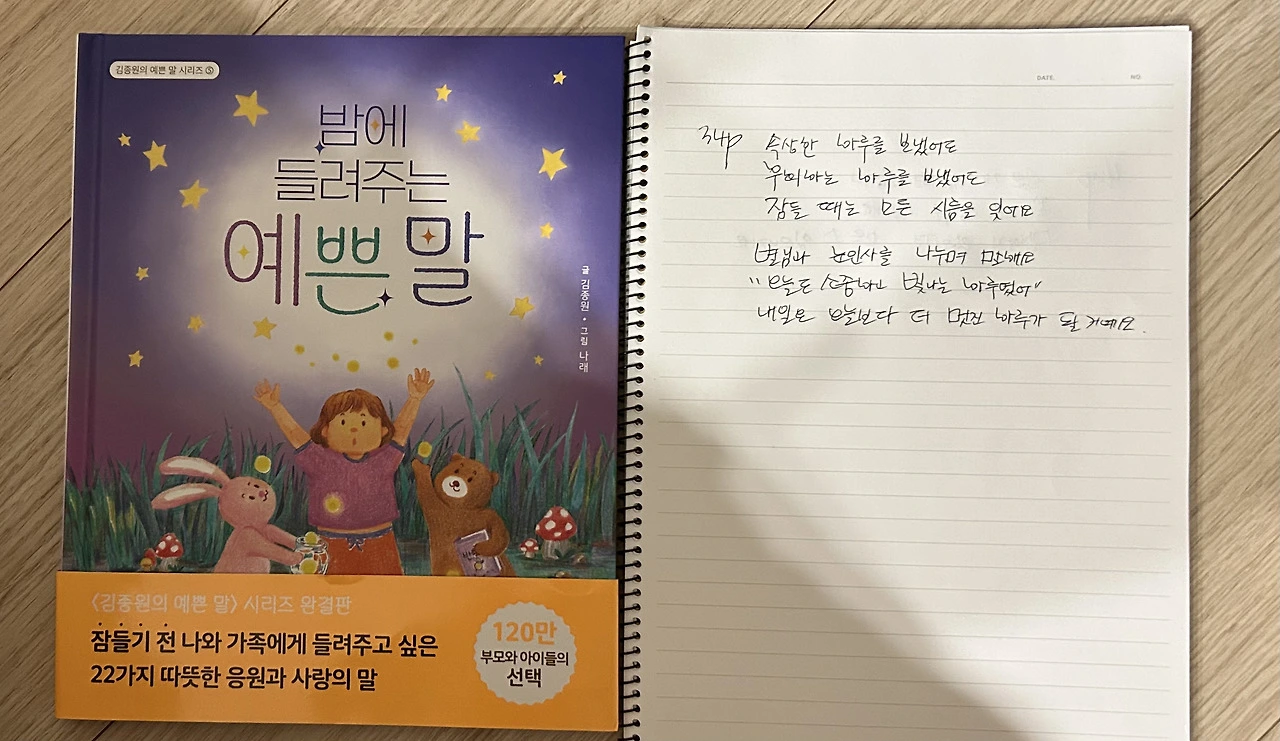 김종원의 예쁜 말 시리즈 ⑤
밤에
들려주는
예쁜 말
글 김종원 • 그림 나래
〈김종원의 예쁜 말〉 시리즈 완결판
잠들기 전 나와 가족에게 들려주고 싶은
22가지 따뜻한 응원과 사랑의 말
120만
부모와 아이들의
선택
DATE. NO.
34p 속상한 하루를 보냈어도
우미하는 하루를 보냈어도
잠들 때는 모든 시름을 잊어요
별님과 눈인사를 나누며 말해요
"오늘도 소중하고 빛나는 하루였어"
내일은 오늘보다 더 멋진 하루가 될 거예요.